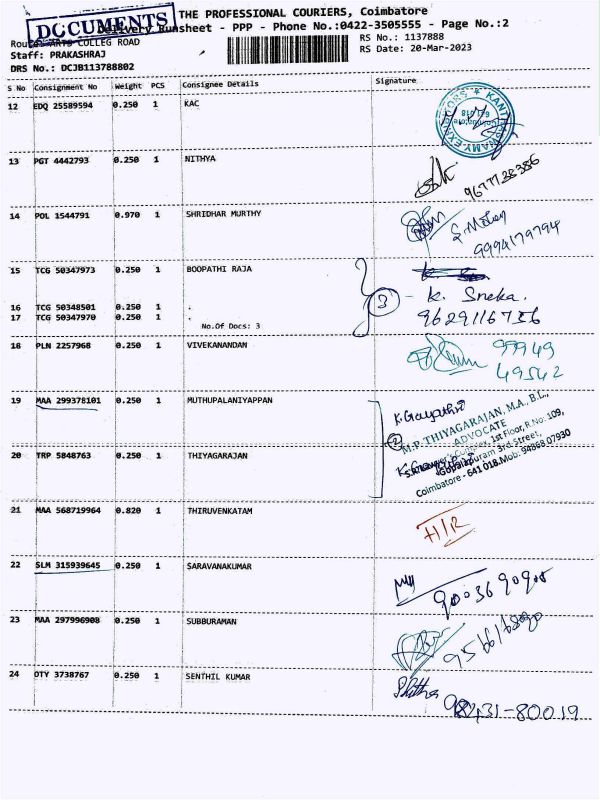 DOCUMENTS
THE PROFESSIONAL COURIERS, Coimbatore
Delivery Runsheet - PPP - Phone No.:0422-3505555 - Page No.:2
Route: ARTS COLLEG ROAD
RS No.: 1137888
Staff: PRAKASHRAJ
RS Date: 20-Mar-2023
DRS No.: DCJB113788802
S No Consignment No Weight PCS Consignee Details Signature
12 EDQ 25589594 0.250 1 KAC
13 PGT 4442793 0.250 1 NITHYA
9677738386
14 POL 1544791 0.970 1 SHRIDHAR MURTHY
S. Mohan
9994179794
15 TCG 50347973 0.250 1 BOOPATHI RAJA
3
k. Sneka.
16 TCG 50348501 0.250 1 .
17 TCG 50347970 0.250 1 .
9629116756
No.Of Docs: 3
18 PLN 2257968 0.250 1 VIVEKANANDAN
99949
49542
19 MAA 299378101 0.250 1 MUTHUPALANIYAPPAN
K. Gayathri
2
M.P. THIYAGARAJAN, M.A., B.L.,
ADVOCATE
1st Floor, R.No: 109,
20 TRP 5848763 0.250 1 THIYAGARAJAN
Gopalapuram 3rd Street,
Coimbatore - 641 018. Mob: 94868 07930
21 MAA 568719964 0.820 1 THIRUVENKATAM
H/R
22 SLM 315939645 0.250 1 SARAVANAKUMAR
23 MAA 297996908 0.250 1 SUBBURAMAN
24 OTY 3738767 0.250 1 SENTHIL KUMAR